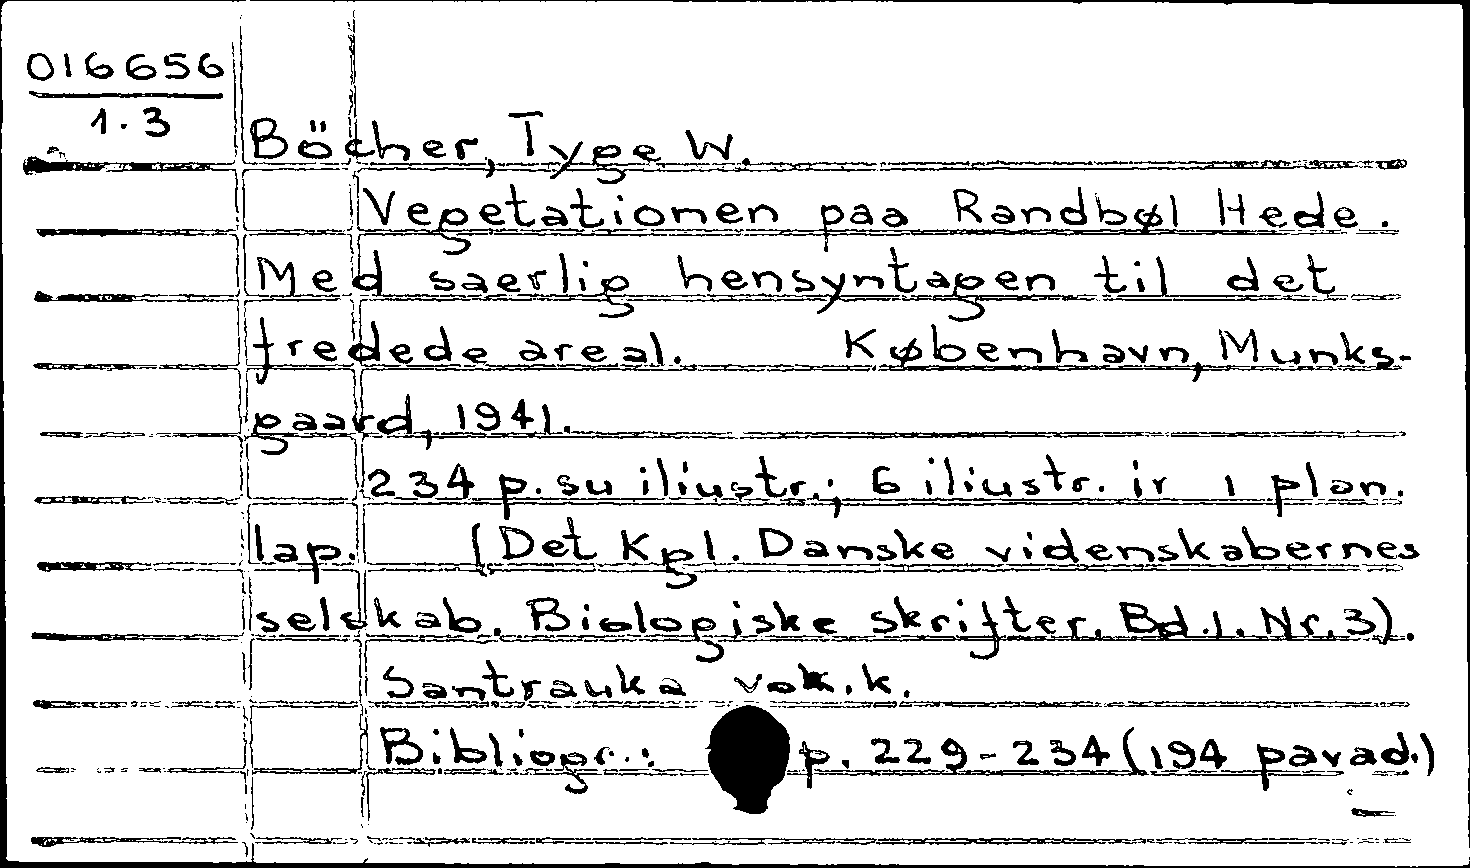 016656
1.3
Böcher, Tyge W.
Vegetationen paa Randbøl Hede.
Med saerlig hensyntagen til det
fredede areal. København, Munks-
gaard, 1941.
234 p. su iliustr.; 6 iliustr. ir 1 plan.
lap. (Det Kgl. Danske videnskabernes
selskab. Biologiske skrifter. Bd.1. Nr.3).
Santrauka vok.k.
Bibliogr.: p. 229-234 (194 pavad.)